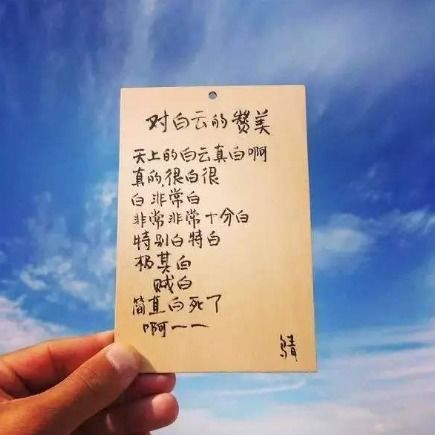 对白云的赞美
天上的白云真白啊
真的,很白很
白非常白
非常非常十分白
特别白特白
极其白
贼白
简直白死了
啊一一
乌青